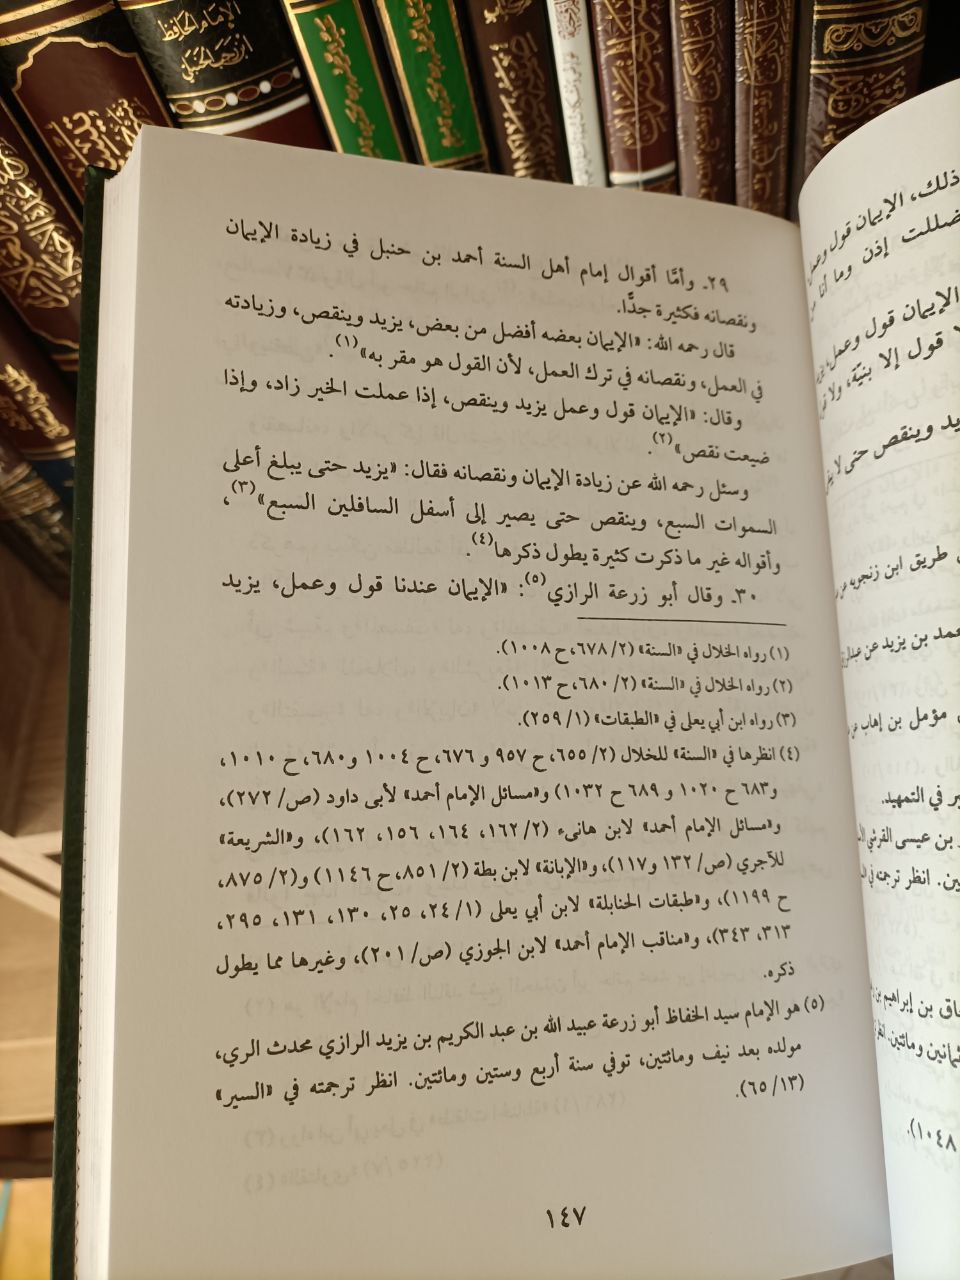 الإمام الحافظ
ابن رجب الحنبلي
٢٩ـ وأمَّا أقوال إمام أهل السنة أحمد بن حنبل في زيادة الإيمان
ونقصانه فكثيرة جدًّا.
قال رحمه الله: «الإيمان بعضه أفضل من بعض، يزيد وينقص، وزيادته
في العمل، ونقصانه في ترك العمل، لأن القول هو مقر به»(١).
وقال: «الإيمان قول وعمل يزيد وينقص، إذا عملت الخير زاد، وإذا
ضيعت نقص»(٢).
وسئل رحمه الله عن زيادة الإيمان ونقصانه فقال: «يزيد حتى يبلغ أعلى
السموات السبع، وينقص حتى يصير إلى أسفل السافلين السبع»(٣)،
وأقواله غير ما ذكرت كثيرة يطول ذكرها(٤).
٣٠ـ وقال أبو زرعة الرازي(٥): «الإيمان عندنا قول وعمل، يزيد
(١) رواه الخلال في «السنة» (٢/ ٦٧٨، ح ١٠٠٨).
(٢) رواه الخلال في «السنة» (٢/ ٦٨٠، ح ١٠١٣).
(٣) رواه ابن أبي يعلى في «الطبقات» (١/ ٢٥٩).
(٤) انظرها في «السنة» للخلال (٢/ ٦٥٥، ح ٩٥٧ و ٦٧٦، ح ١٠٠٤ و٦٨٠، ح ١٠١٠،
و٦٨٣ ح ١٠٢٠ و ٦٨٩ ح ١٠٣٢) و«مسائل الإمام أحمد» لأبى داود (ص/ ٢٧٢)،
و«مسائل الإمام أحمد» لابن هانىء (٢/ ١٦٢، ١٦٤، ١٥٦، ١٦٢)، و«الشريعة»
للآجري (ص/ ١٣٢ و١١٧)، و«الإبانة» لابن بطة (٢/ ٨٥١، ح ١١٤٦) و(٢/ ٨٧٥،
ح ١١٩٩)، و«طبقات الحنابلة» لابن أبي يعلى (١/ ٢٤، ٢٥، ١٣٠، ١٣١، ٢٩٥،
٣١٣، ٣٤٣)، و«مناقب الإمام أحمد» لابن الجوزي (ص/ ٢٠١)، وغيرها مما يطول
ذكره.
(٥) هو الإمام سيد الحفاظ أبو زرعة عبيد الله بن عبد الكريم بن يزيد الرازي محدث الري،
مولده بعد نيف ومائتين، توفي سنة أربع وستين ومائتين. انظر ترجمته في «السير»
(١٣/ ٦٥).
١٤٧
ذلك، الإيمان قول وعمل
ضللت إذن وما أنا من
الإيمان قول وعمل،
قول إلا بنية، ولا
يد وينقص حتى لا
طريق ابن زنجويه عن
حمد بن يزيد عن
مؤمل بن إهاب عن
ير في التمهيد.
بن عيسى القرشي
ين. انظر ترجمته في
حاق بن إبراهيم بن
ثمانين ومائتين. انظر
١٠٤٨).